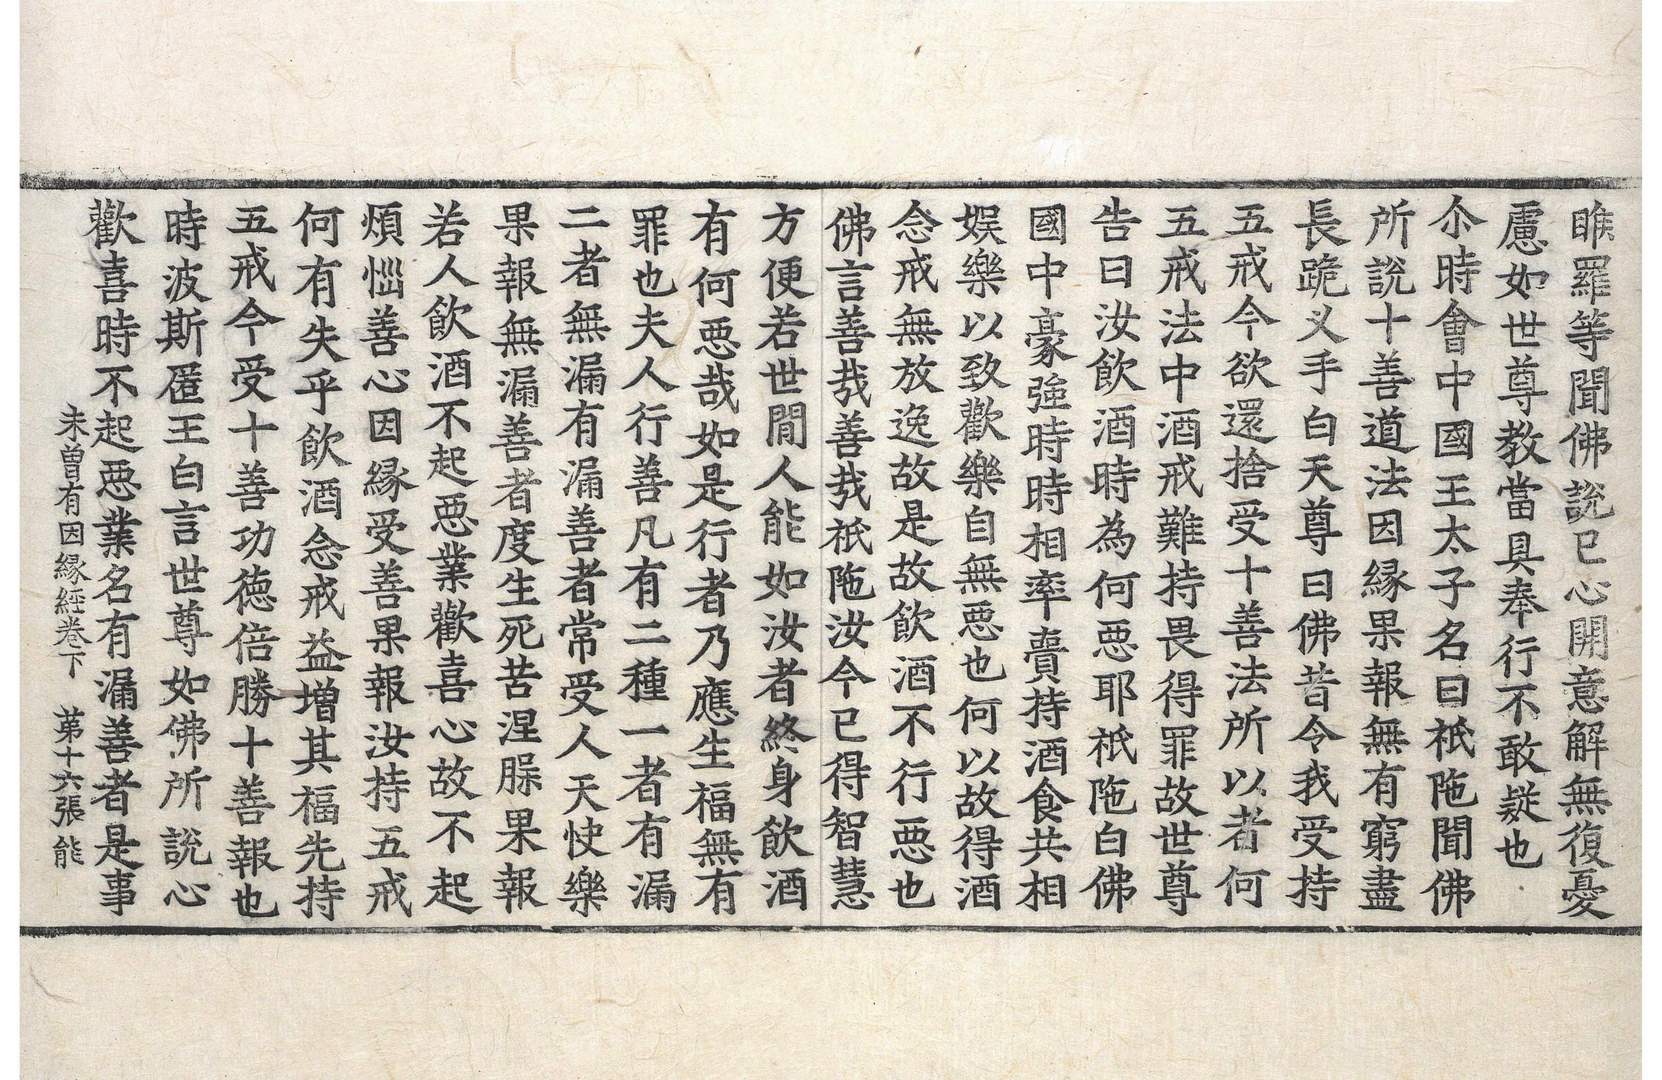 睢羅等聞佛說已心開意解無復憂
慮如世尊教當具奉行不敢疑也
尒時會中國王太子名曰祇陁聞佛
所說十善道法因緣果報無有窮盡
長跪义手白天尊曰佛昔令我受持
五戒今欲還捨受十善法所以者何
五戒法中酒戒難持畏得罪故世尊
告曰汝飲酒時為何惡耶祇陁白佛
國中豪強時時相率賷持酒食共相
娯樂以致歡樂自無惡也何以故得酒
念戒無放逸故是故飲酒不行惡也
佛言善㢤善㢤祇陁汝今已得智慧
方便若世間人能如汝者終身飲酒
有何惡哉如是行者乃應生福無有
罪也夫人行善凡有二種一者有漏
二者無漏有漏善者常受人天快樂
果報無漏善者度生死苦涅槃果報
若人飲酒不起惡業歡喜心故不起
煩惱善心因緣受善果報汝持五戒
何有失乎飲酒念戒益增其福先持
五戒今受十善功德倍勝十善報也
時波斯匿王白言世尊如佛所說心
歡喜時不起惡業名有漏善者是事
未曾有因緣經卷下　第十六張　能